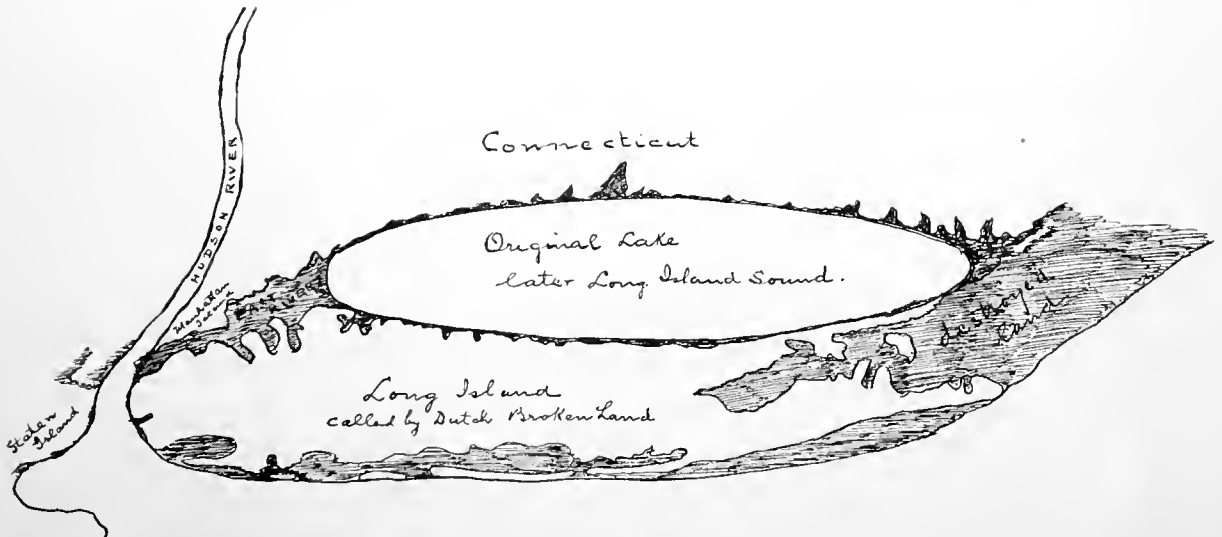 Connecticut
HUDSON RIVER
Original Lake
later Long Island Sound.
Manhattan
Island
EAST
RIVER
destroyed
Land
Long Island
called by Dutch Broken Land
Staten
Island